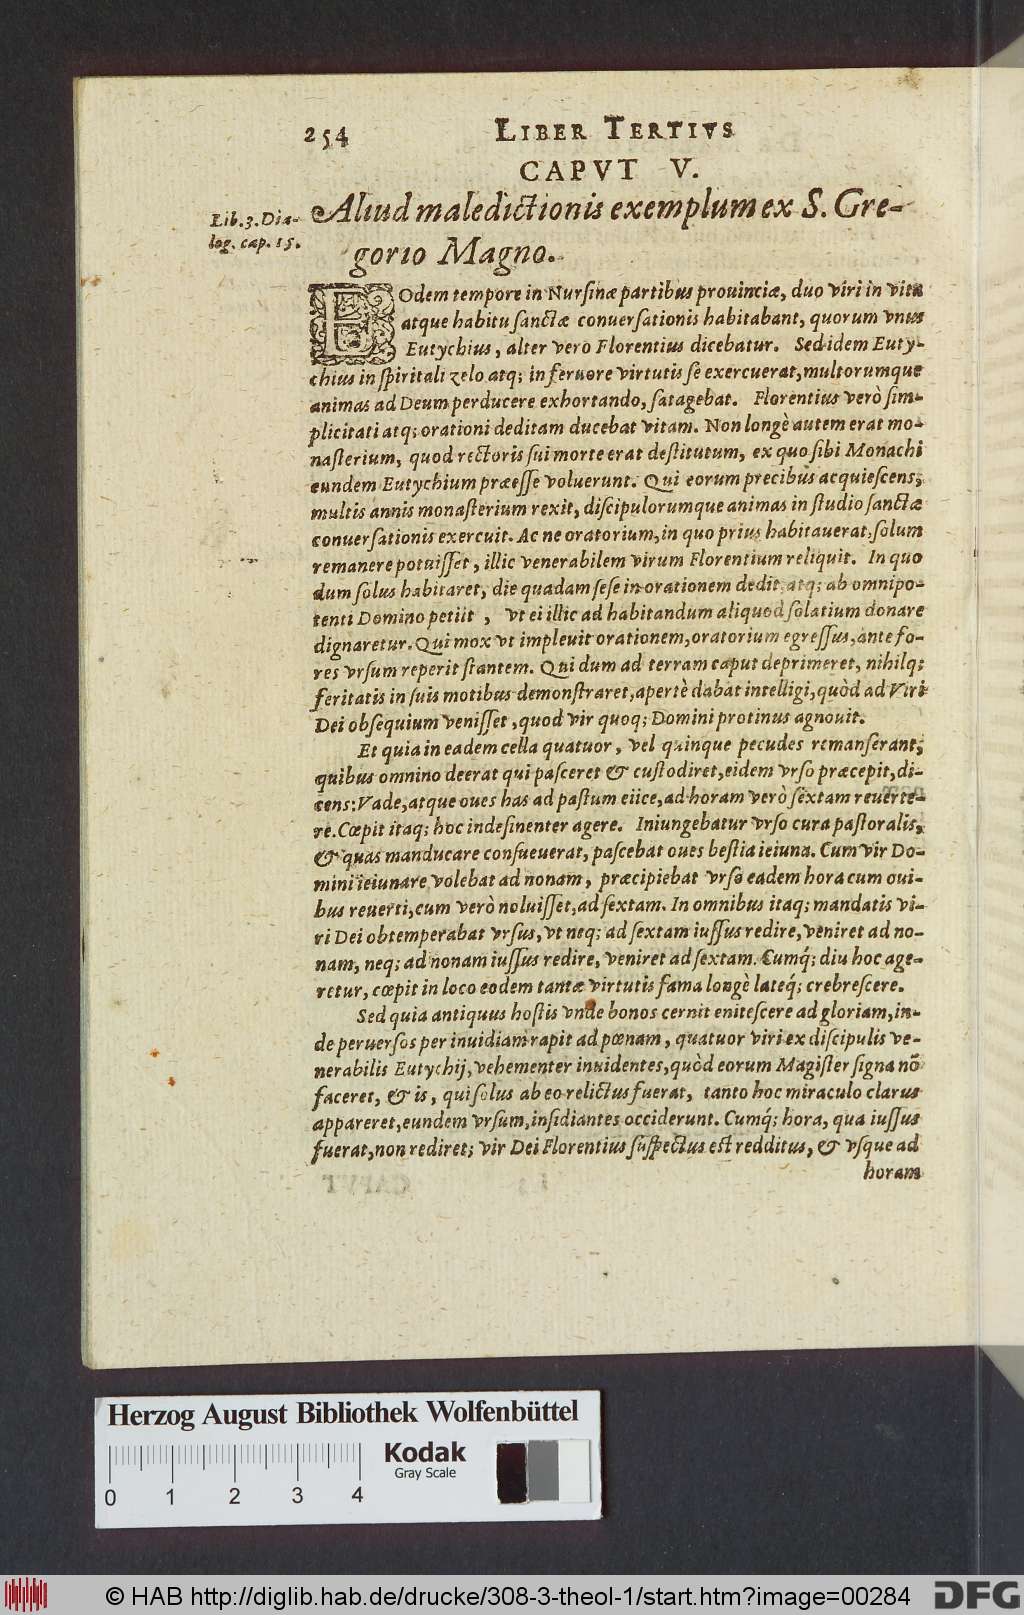 254
LIBER TERTIVS
CAPVT V.
Lib. 3. Dia-
log. cap. 15.
Aliud maledictionis exemplum ex S. Gre-
gorio Magno.
EOdem tempore in Nurſinæ partibus prouinciæ, duo viri in vita
atque habitu ſanctæ conuerſationis habitabant, quorum vnus
Eutychius, alter vero Florentius dicebatur. Sed idem Euty-
chius in ſpiritali zelo atq; in feruore virtutis ſe exercuerat, multorumque
animas ad Deum perducere exhortando, ſatagebat. Florentius verò ſim-
plicitati atq; orationi deditam ducebat vitam. Non longè autem erat mo-
naſterium, quod rectoris ſui morte erat deſtitutum, ex quo ſibi Monachi
eundem Eutychium præeſſe voluerunt. Qui eorum precibus acquieſcens,
multis annis monaſterium rexit, diſcipulorumque animas in ſtudio ſanctæ
conuerſationis exercuit. Ac ne oratorium, in quo prius habitauerat, ſolum
remanere potuiſſet, illic venerabilem virum Florentium reliquit. In quo
dum ſolus habitaret, die quadam ſeſe in orationem dedit, atq; ab omnipo-
tenti Domino petiit, vt ei illic ad habitandum aliquod ſolatium donare
dignaretur. Qui mox vt impleuit orationem, oratorium egreſſus, ante fo-
res vrſum reperit ſtantem. Qui dum ad terram caput deprimeret, nihilq;
feritatis in ſuis motibus demonſtraret, apertè dabat intelligi, quòd ad Viri
Dei obſequium veniſſet, quod vir quoq; Domini protinus agnouit.
Et quia in eadem cella quatuor, vel quinque pecudes remanſerant,
quibus omnino deerat qui paſceret & cuſtodiret, eidem vrſo præcepit, di-
cens: Vade, atque oues has ad paſtum eiice, ad horam verò ſextam reuerte-
re. Cœpit itaq; hoc indeſinenter agere. Iniungebatur vrſo cura paſtoralis,
& quas manducare conſueuerat, paſcebat oues beſtia ieiuna. Cum vir Do-
mini ieiunare volebat ad nonam, præcipiebat vrſo eadem hora cum oui-
bus reuerti, cum verò noluiſſet, ad ſextam. In omnibus itaq; mandatis vi-
ri Dei obtemperabat vrſus, vt neq; ad ſextam iuſſus redire, veniret ad no-
nam, neq; ad nonam iuſſus redire, veniret ad ſextam. Cumq́; diu hoc age-
retur, cœpit in loco eodem tantæ virtutis fama longè lateq́; crebreſcere.
Sed quia antiquus hoſtis vnde bonos cernit eniteſcere ad gloriam, in-
de peruerſos per inuidiam rapit ad pœnam, quatuor viri ex diſcipulis ve-
nerabilis Eutychij, vehementer inuidentes, quòd eorum Magiſter ſigna nō
faceret, & is, qui ſolus ab eo relictus fuerat, tanto hoc miraculo clarus
appareret, eundem vrſum, inſidiantes occiderunt. Cumq́; hora, qua iuſſus
fuerat, non rediret; vir Dei Florentius ſuſpectus eſt redditus, & vſque ad
horam
Herzog August Bibliothek Wolfenbüttel
Kodak
Gray Scale
0 1 2 3 4
© HAB http://diglib.hab.de/drucke/308-3-theol-1/start.htm?image=00284
DFG